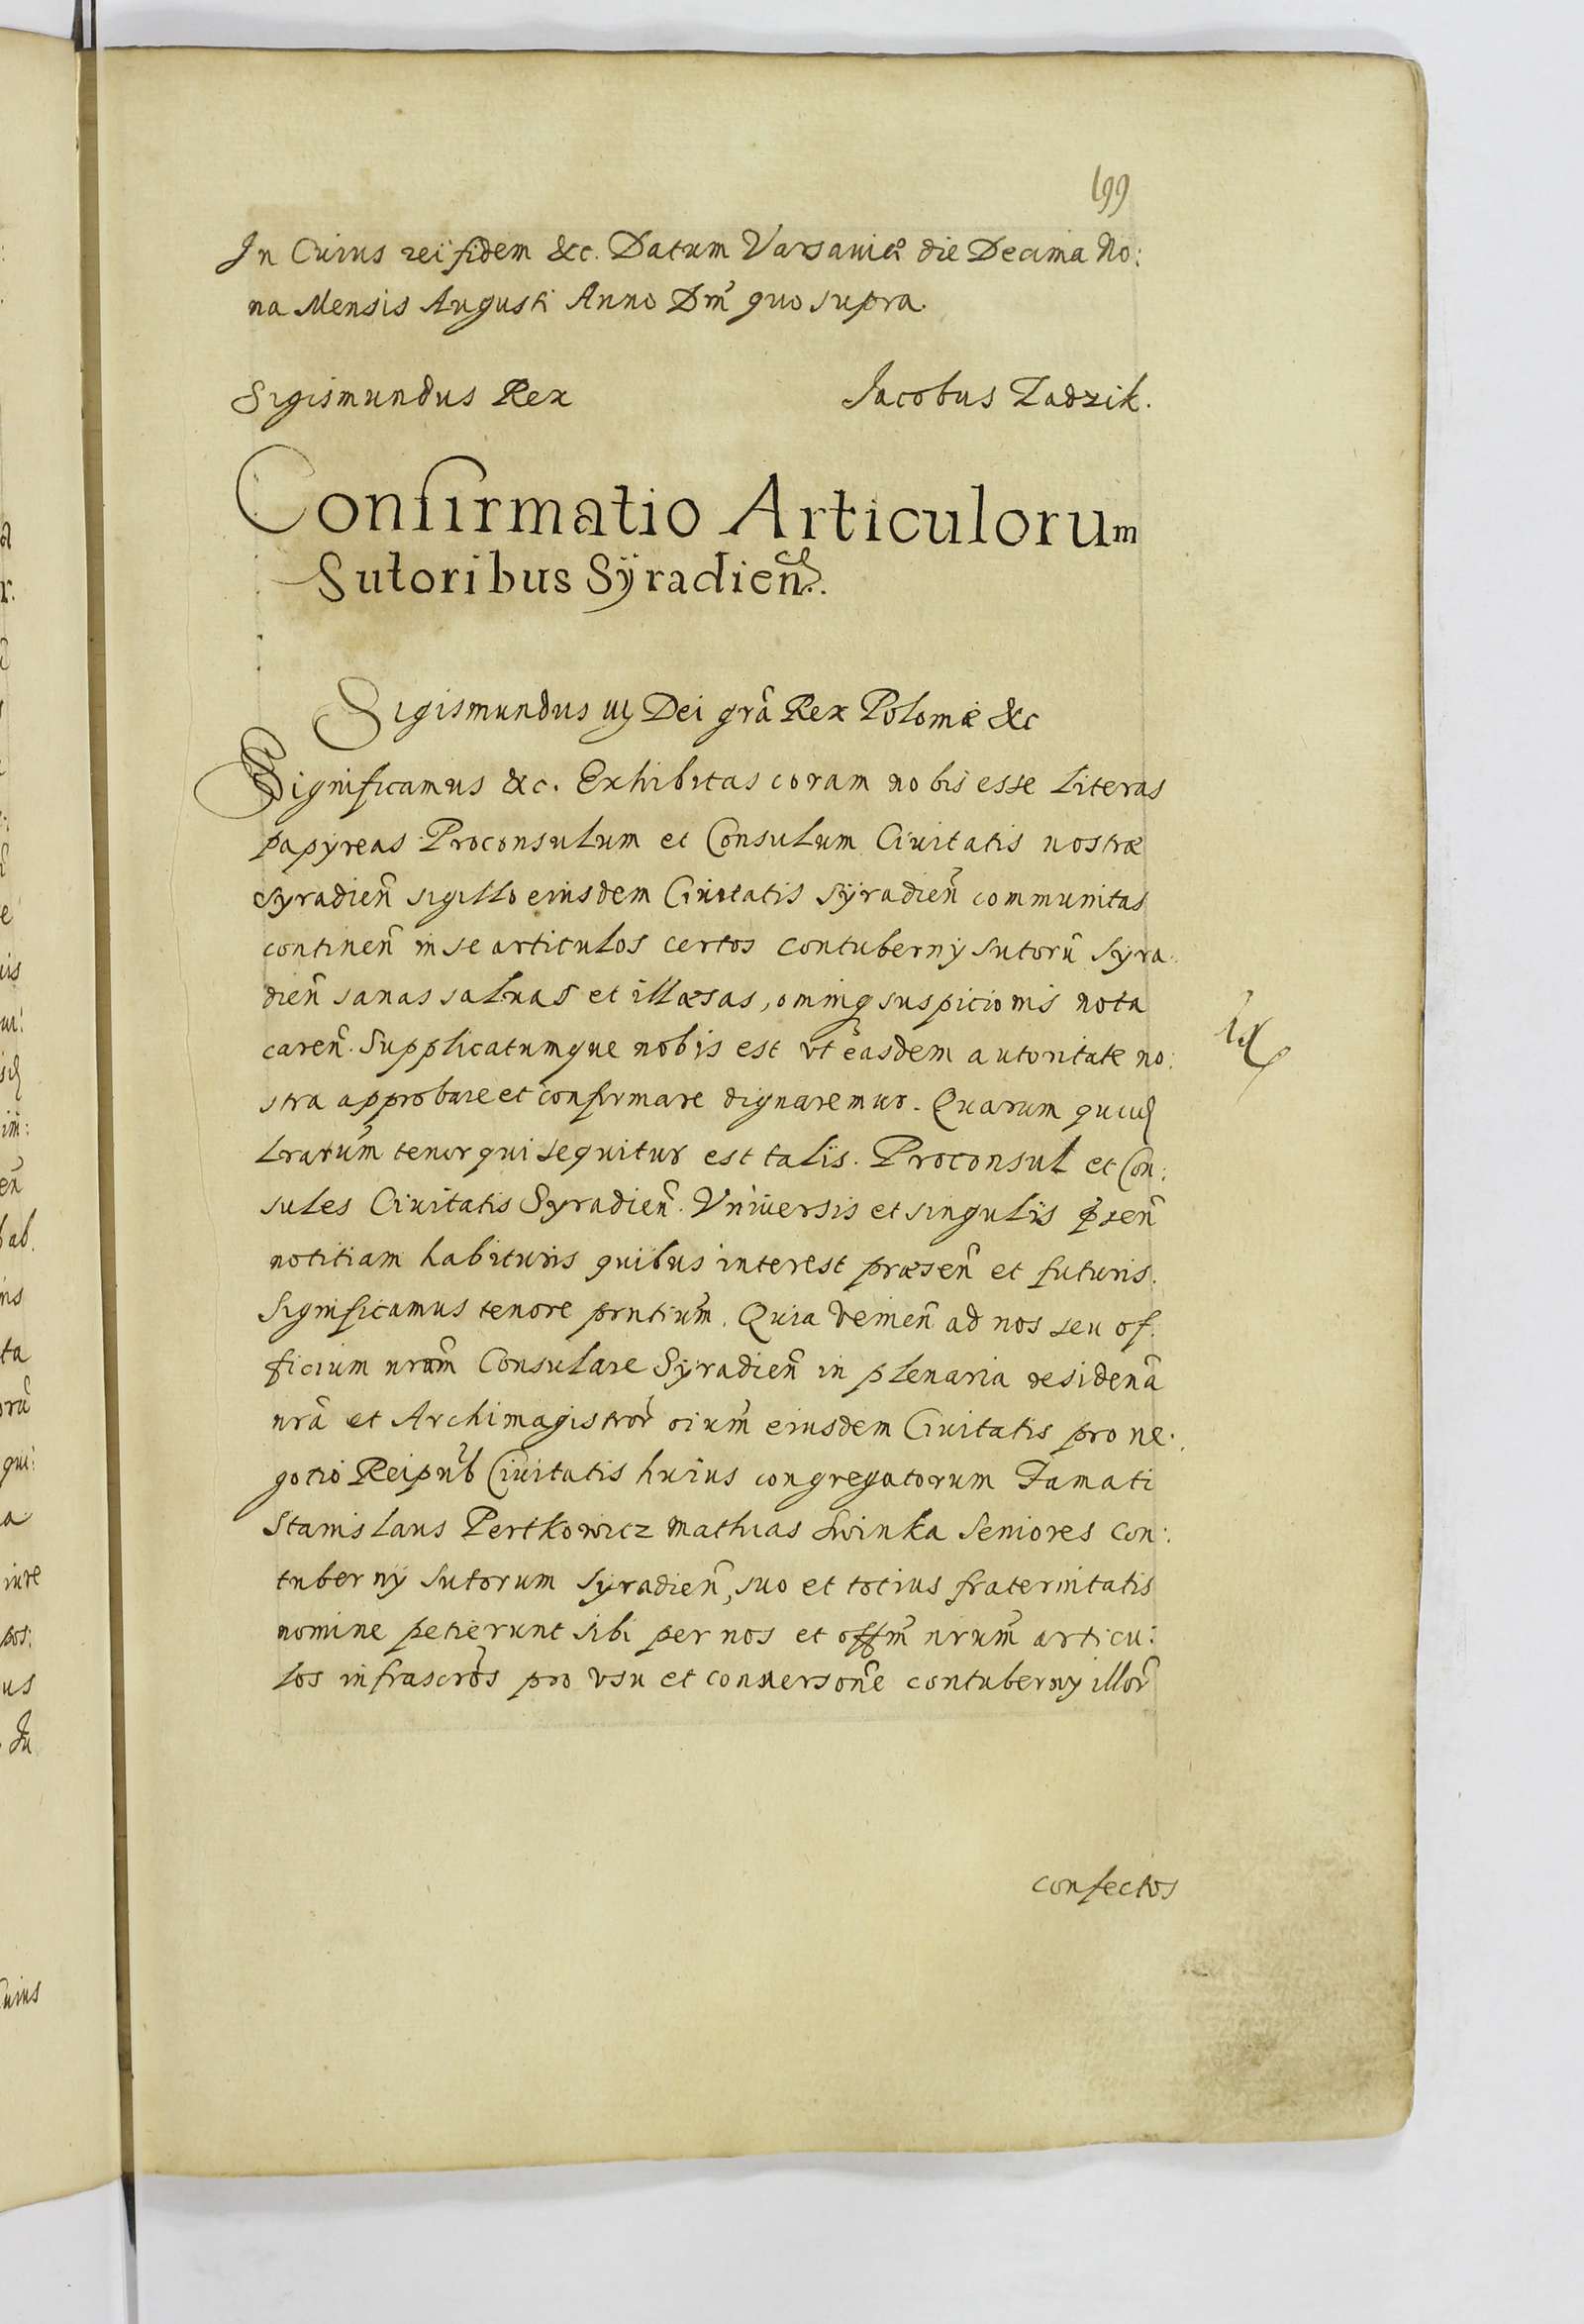 199
In Cuius rei fidem &c. Datum Varsaviæ die Decima No:
na Mensis Augusti Anno Dm̃ quo supra.
Sigismundus Rex Jacobus Zadzik.
Confirmatio Articulorum
Sutoribus Sÿradien̄.
Sigismundus iij Dei grã Rex Poloniæ &c
Significamus &c. Exhibitas coram nobis esse literas
papyreas Proconsulum et Consulum Ciuitatis nostræ
Syradien̄ sigillo eiusdem Ciuitatis Sÿradien̄ communitas
continen̄ in se articulos certos contubernÿ sutorũ Syra
dien̄ sanas saluas et illæsas, omniq suspicionis nota
caren̄. Supplicatumque nobis est vt easdem autoritate no:
stra approbare et confirmare dignaremur. Quarum quid
Lrarum̃ tenor qui sequitur est talis. Proconsul et Con:
sules Ciuitatis Syradien̄. Vniuersis et singulis p̃sen̄
notitiam habituris quibus interest præsen̄ et futuris.
Significamus tenore prntium̃. Quia venien̄ ad nos seu of
ficium nrum̃ Consulare Syradien̄ in plenaria residen̄a
nrã et Archimagistror̃ oium̃ eiusdem Ciuitatis pro ne.
gotio Reipub̃ Ciuitatis huius congregatorum Famati
Stanislaus Pertkowicz Mathias Swinka Seniores con:
tubernÿ Sutorum Sÿradien̄, suo et totius fraternitatis
nomine petierunt sibi per nos et offm̃ nrum̃ articu:
los infrascrõs pro vsu et conuersonẽ contubernÿ illor̃
confectos